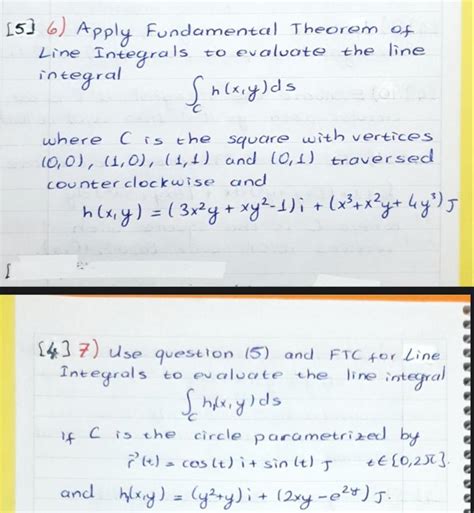 [5] 6) Apply Fundamental Theorem of
Line Integrals to evaluate the line
integral
∫_C h(x,y)ds
where C is the square with vertices
(0,0), (1,0), (1,1) and (0,1) traversed
counterclockwise and
h(x,y) = (3x²y + xy²-1)i + (x³+x²y+4y³)j
[
[4] 7) Use question (5) and FTC for Line
Integrals to evaluate the line integral
∫_C h(x,y)ds
if C is the circle parametrized by
r⃗(t) = cos(t) i + sin(t) j t∈[0,2π].
and h(x,y) = (y²+y)i + (2xy-e²ʸ)j.